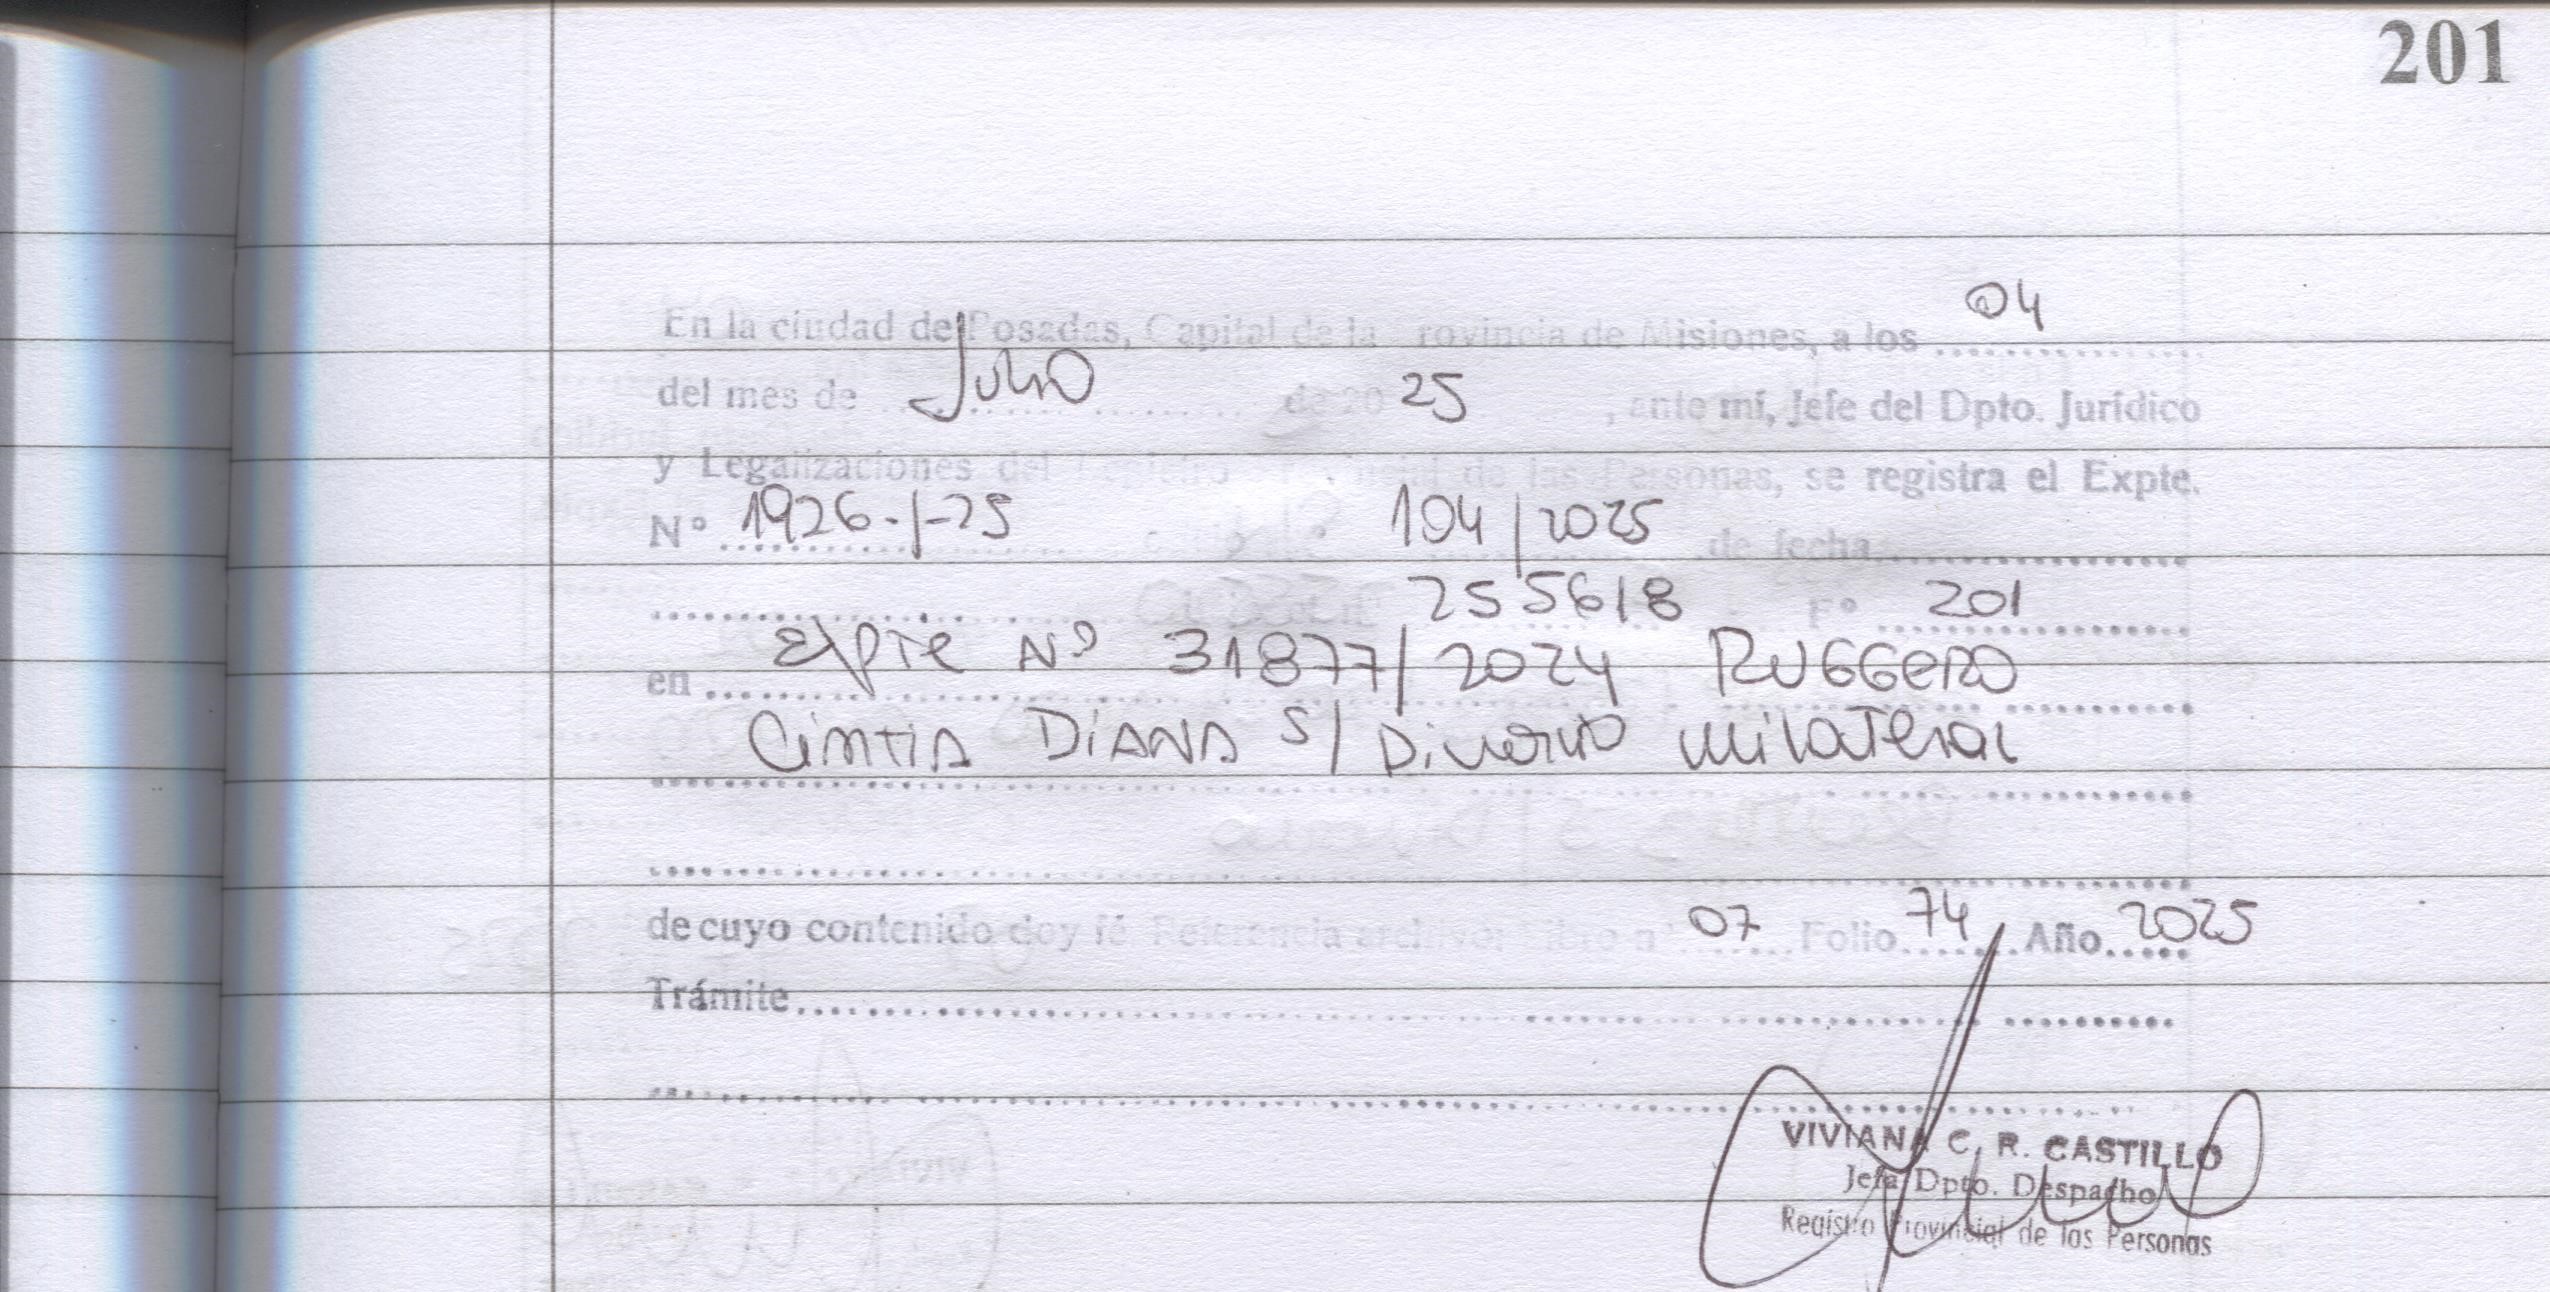 201
En la ciudad de Posadas, Capital de la rovincia de Misiones, a los 04
del mes de Julio de 20 25, ante mí, Jefe del Dpto. Jurídico
y Legalizaciones del de las Personas, se registra el Expte.
Nº 1926-/-25 104/2025 de fecha
255618 Fº 201
en Expte Nº 31877/2024 RUGGERO
Cintia DIANA S/ Divorcio unilateral
de cuyo contenido doy fé Referencia archivo: libro nº 07 Folio 74 Año 2025
Trámite
VIVIANA C. R. CASTILLO
Jefa Dpto. Despacho
Registro Provincial de las Personas